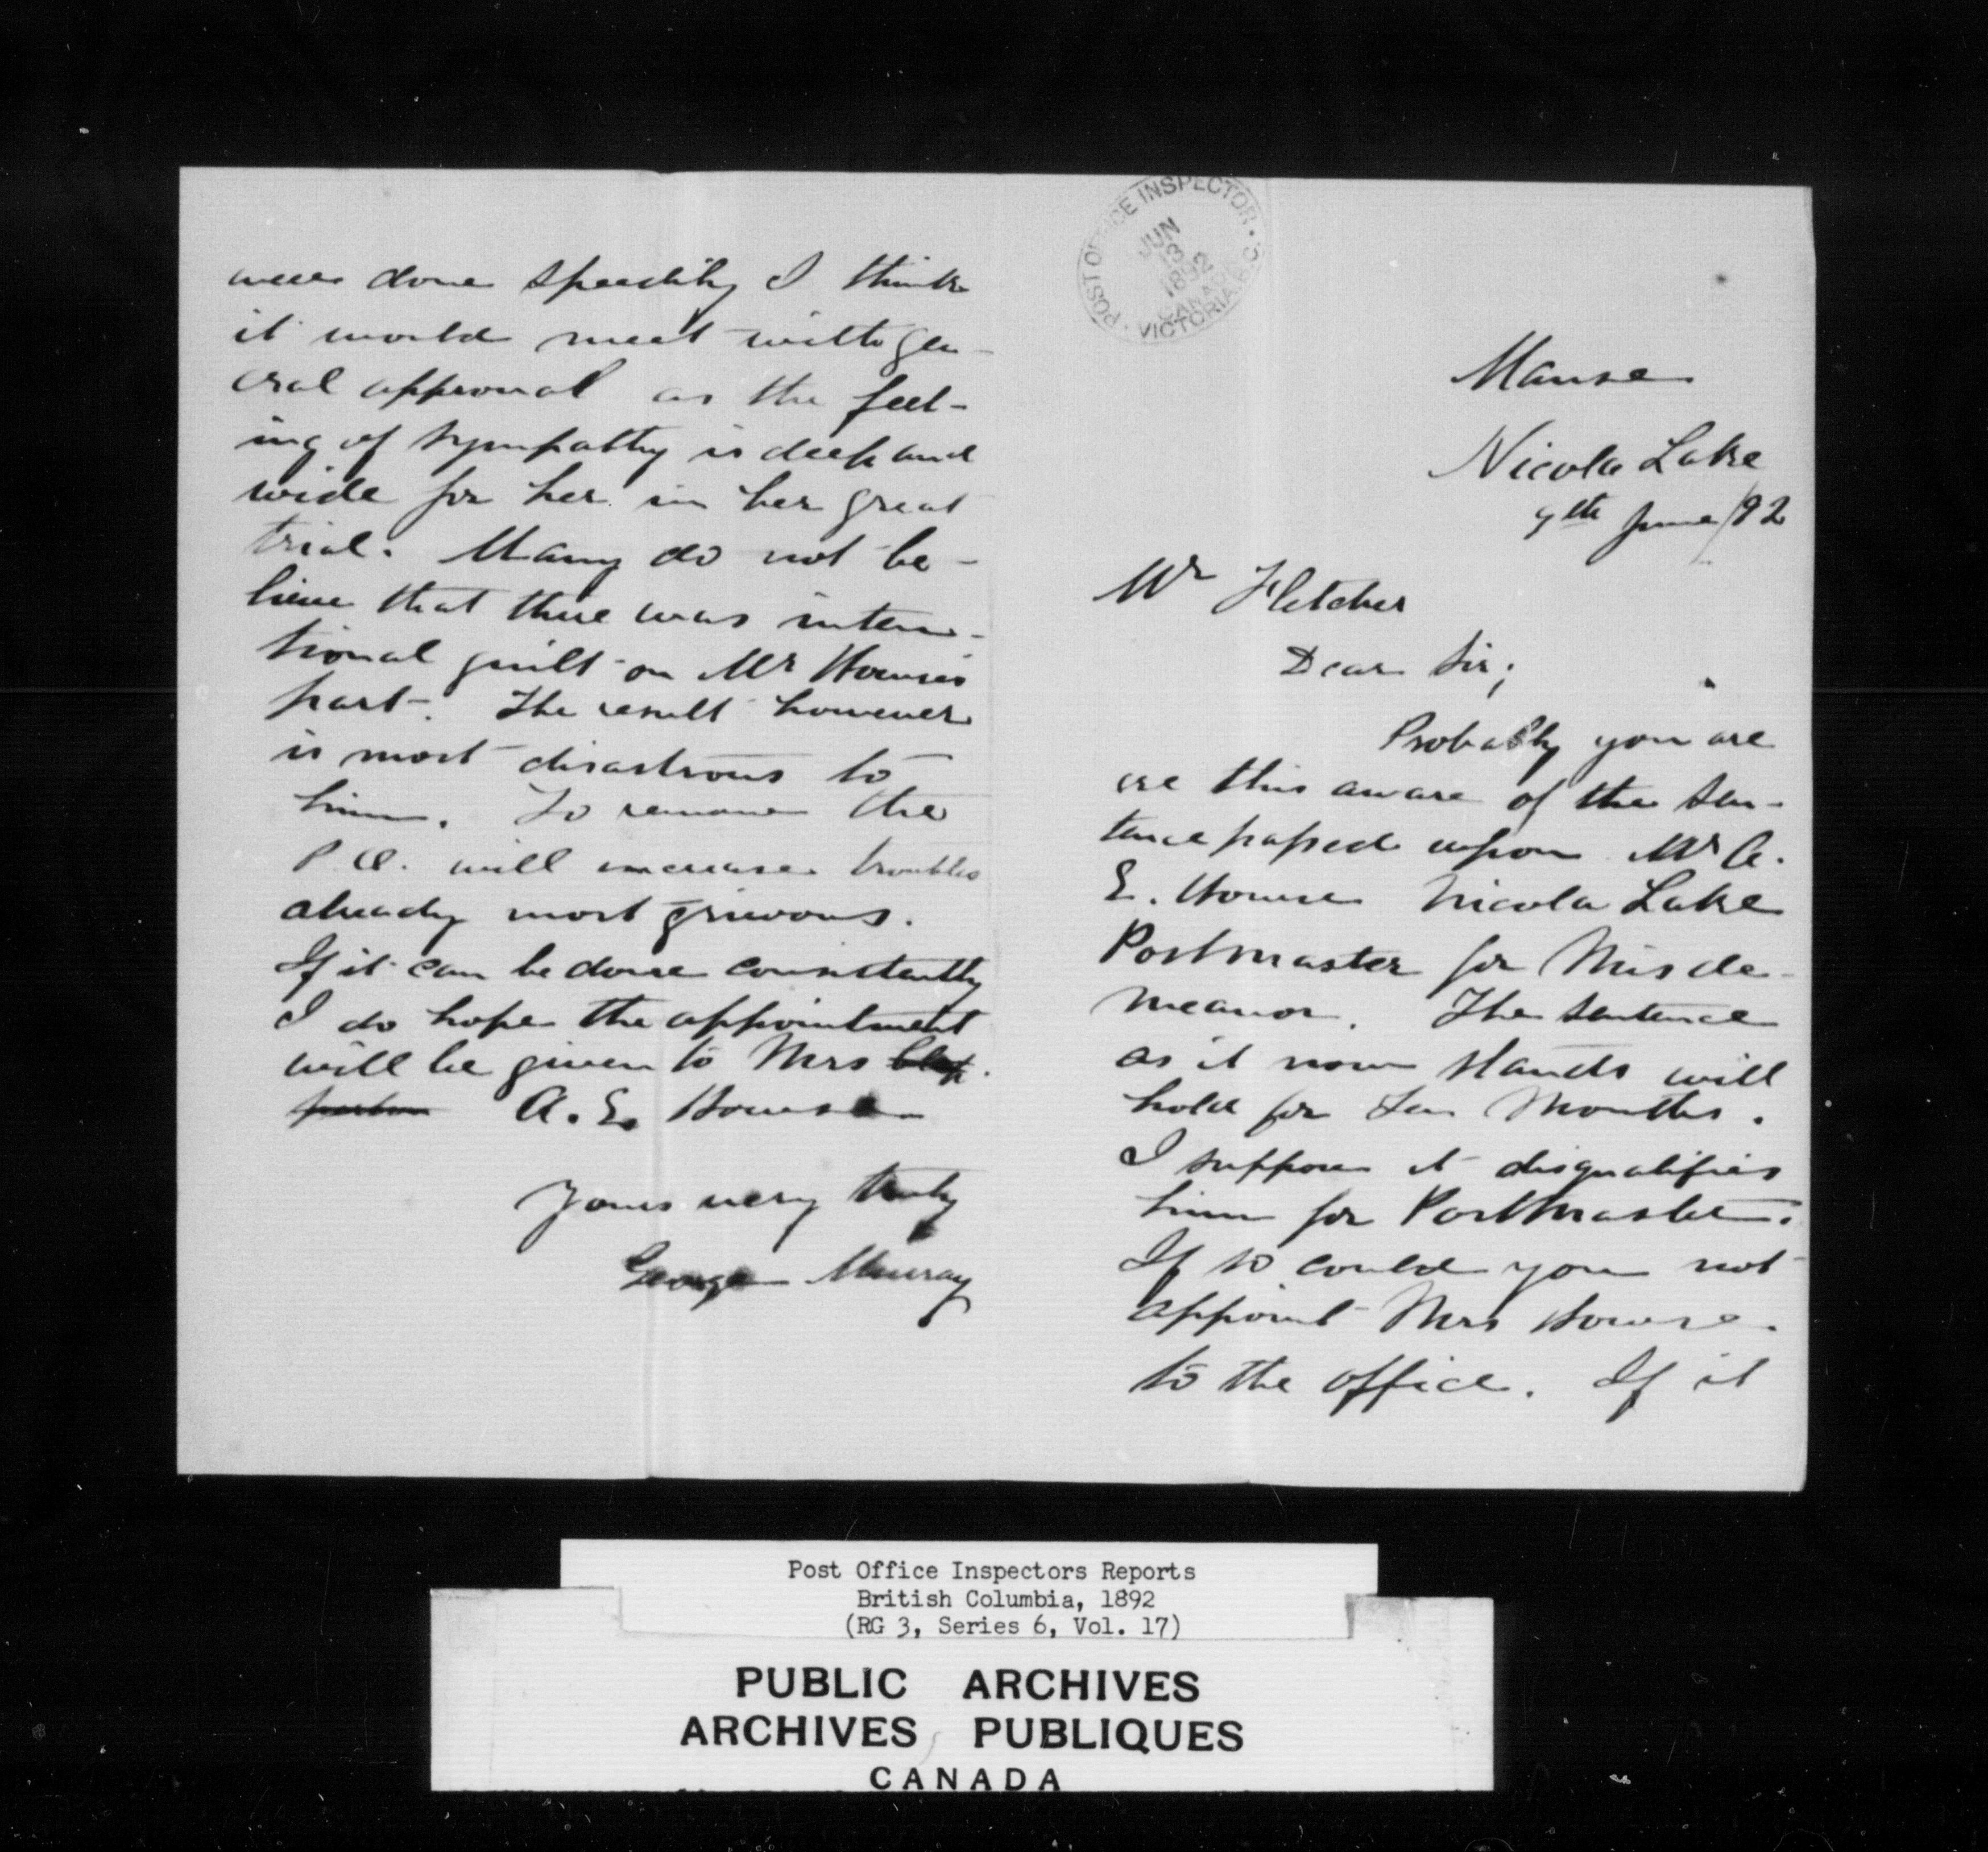 POST OFFICE INSPECTOR · VICTORIA B.C.
JUN
13
1892
CANADA
Manse
Nicola Lake
9th June/92
Mr Fletcher
Dear Sir;
Probably you are
ere this aware of the sen-
tence passed upon Mr A.
E. Howse Nicola Lake
Postmaster for Misde-
meanor. The sentence
as it now stands will
hold for Ten Months.
I suppose it disqualifies
him for Postmaster.
If so could you not
appoint Mrs Howse
to the office. If it
were done speedily I think
it would meet with gen-
eral approval as the feel-
ing of sympathy is deep and
wide for her in her great
trial. Many do not be-
lieve that there was inten-
tional guilt on Mr Howse's
part. The result however
is most disastrous to
him. To remove the
P.O. will increase troubles
already most grievous.
If it can be done consistently
I do hope the appointment
will be given to Mrs
A. E. Howse
Yours very truly
George Murray
Post Office Inspectors Reports
British Columbia, 1892
(RG 3, Series 6, Vol. 17)
PUBLIC ARCHIVES
ARCHIVES PUBLIQUES
CANADA